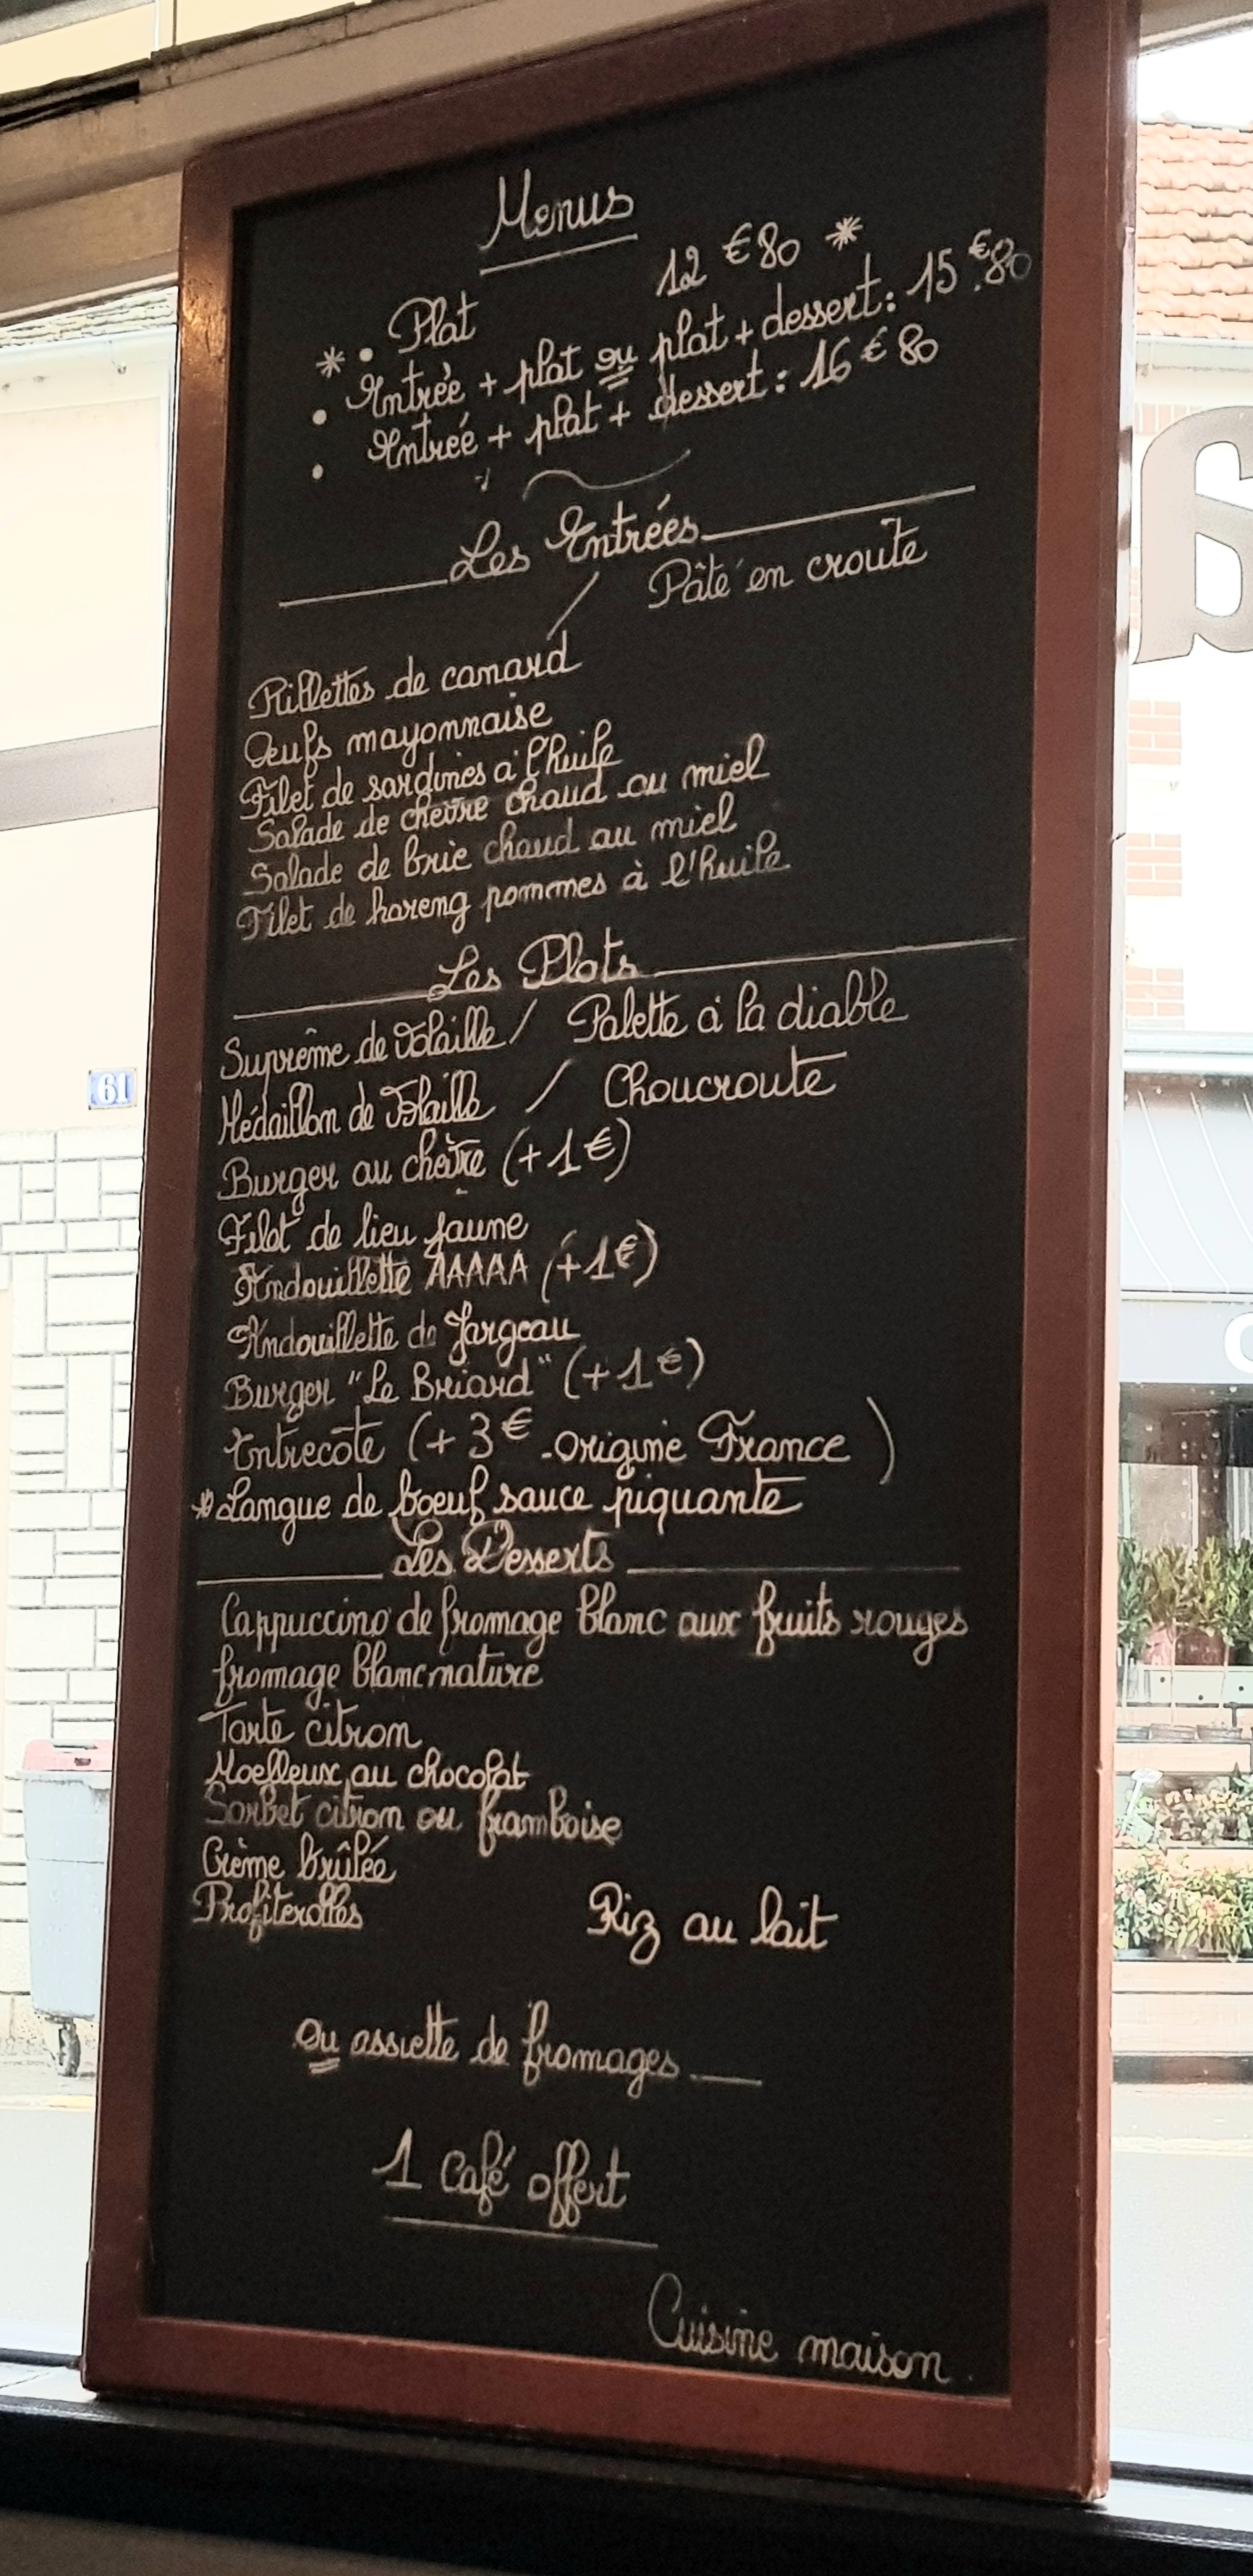 Menus
* • Plat 12 € 80 *
• Entrée + plat ou plat + dessert : 15 € 80
• Entrée + plat + dessert : 16 € 80
Les Entrées
Rillettes de canard / Pâté en croute
Oeufs mayonnaise
Filet de sardines à l'huile
Salade de chèvre chaud au miel
Salade de brie chaud au miel
Filet de hareng pommes à l'huile
Les Plats
Suprême de Volaille / Palette à la diable
Médaillon de Volaille / Choucroute
Burger au chèvre (+1€)
Filet de lieu jaune
Andouillette AAAAA (+1€)
Andouillette de Jargeau
Burger "Le Briard" (+1€)
Entrecôte (+3€ - origine France)
* Langue de boeuf sauce piquante
Les Desserts
Cappuccino de fromage blanc aux fruits rouges
fromage blanc nature
Tarte citron
Moelleux au chocolat
Sorbet citron ou framboise
Crème brûlée
Profiterolles Riz au lait
ou assiette de fromages
1 café offert
Cuisine maison
61